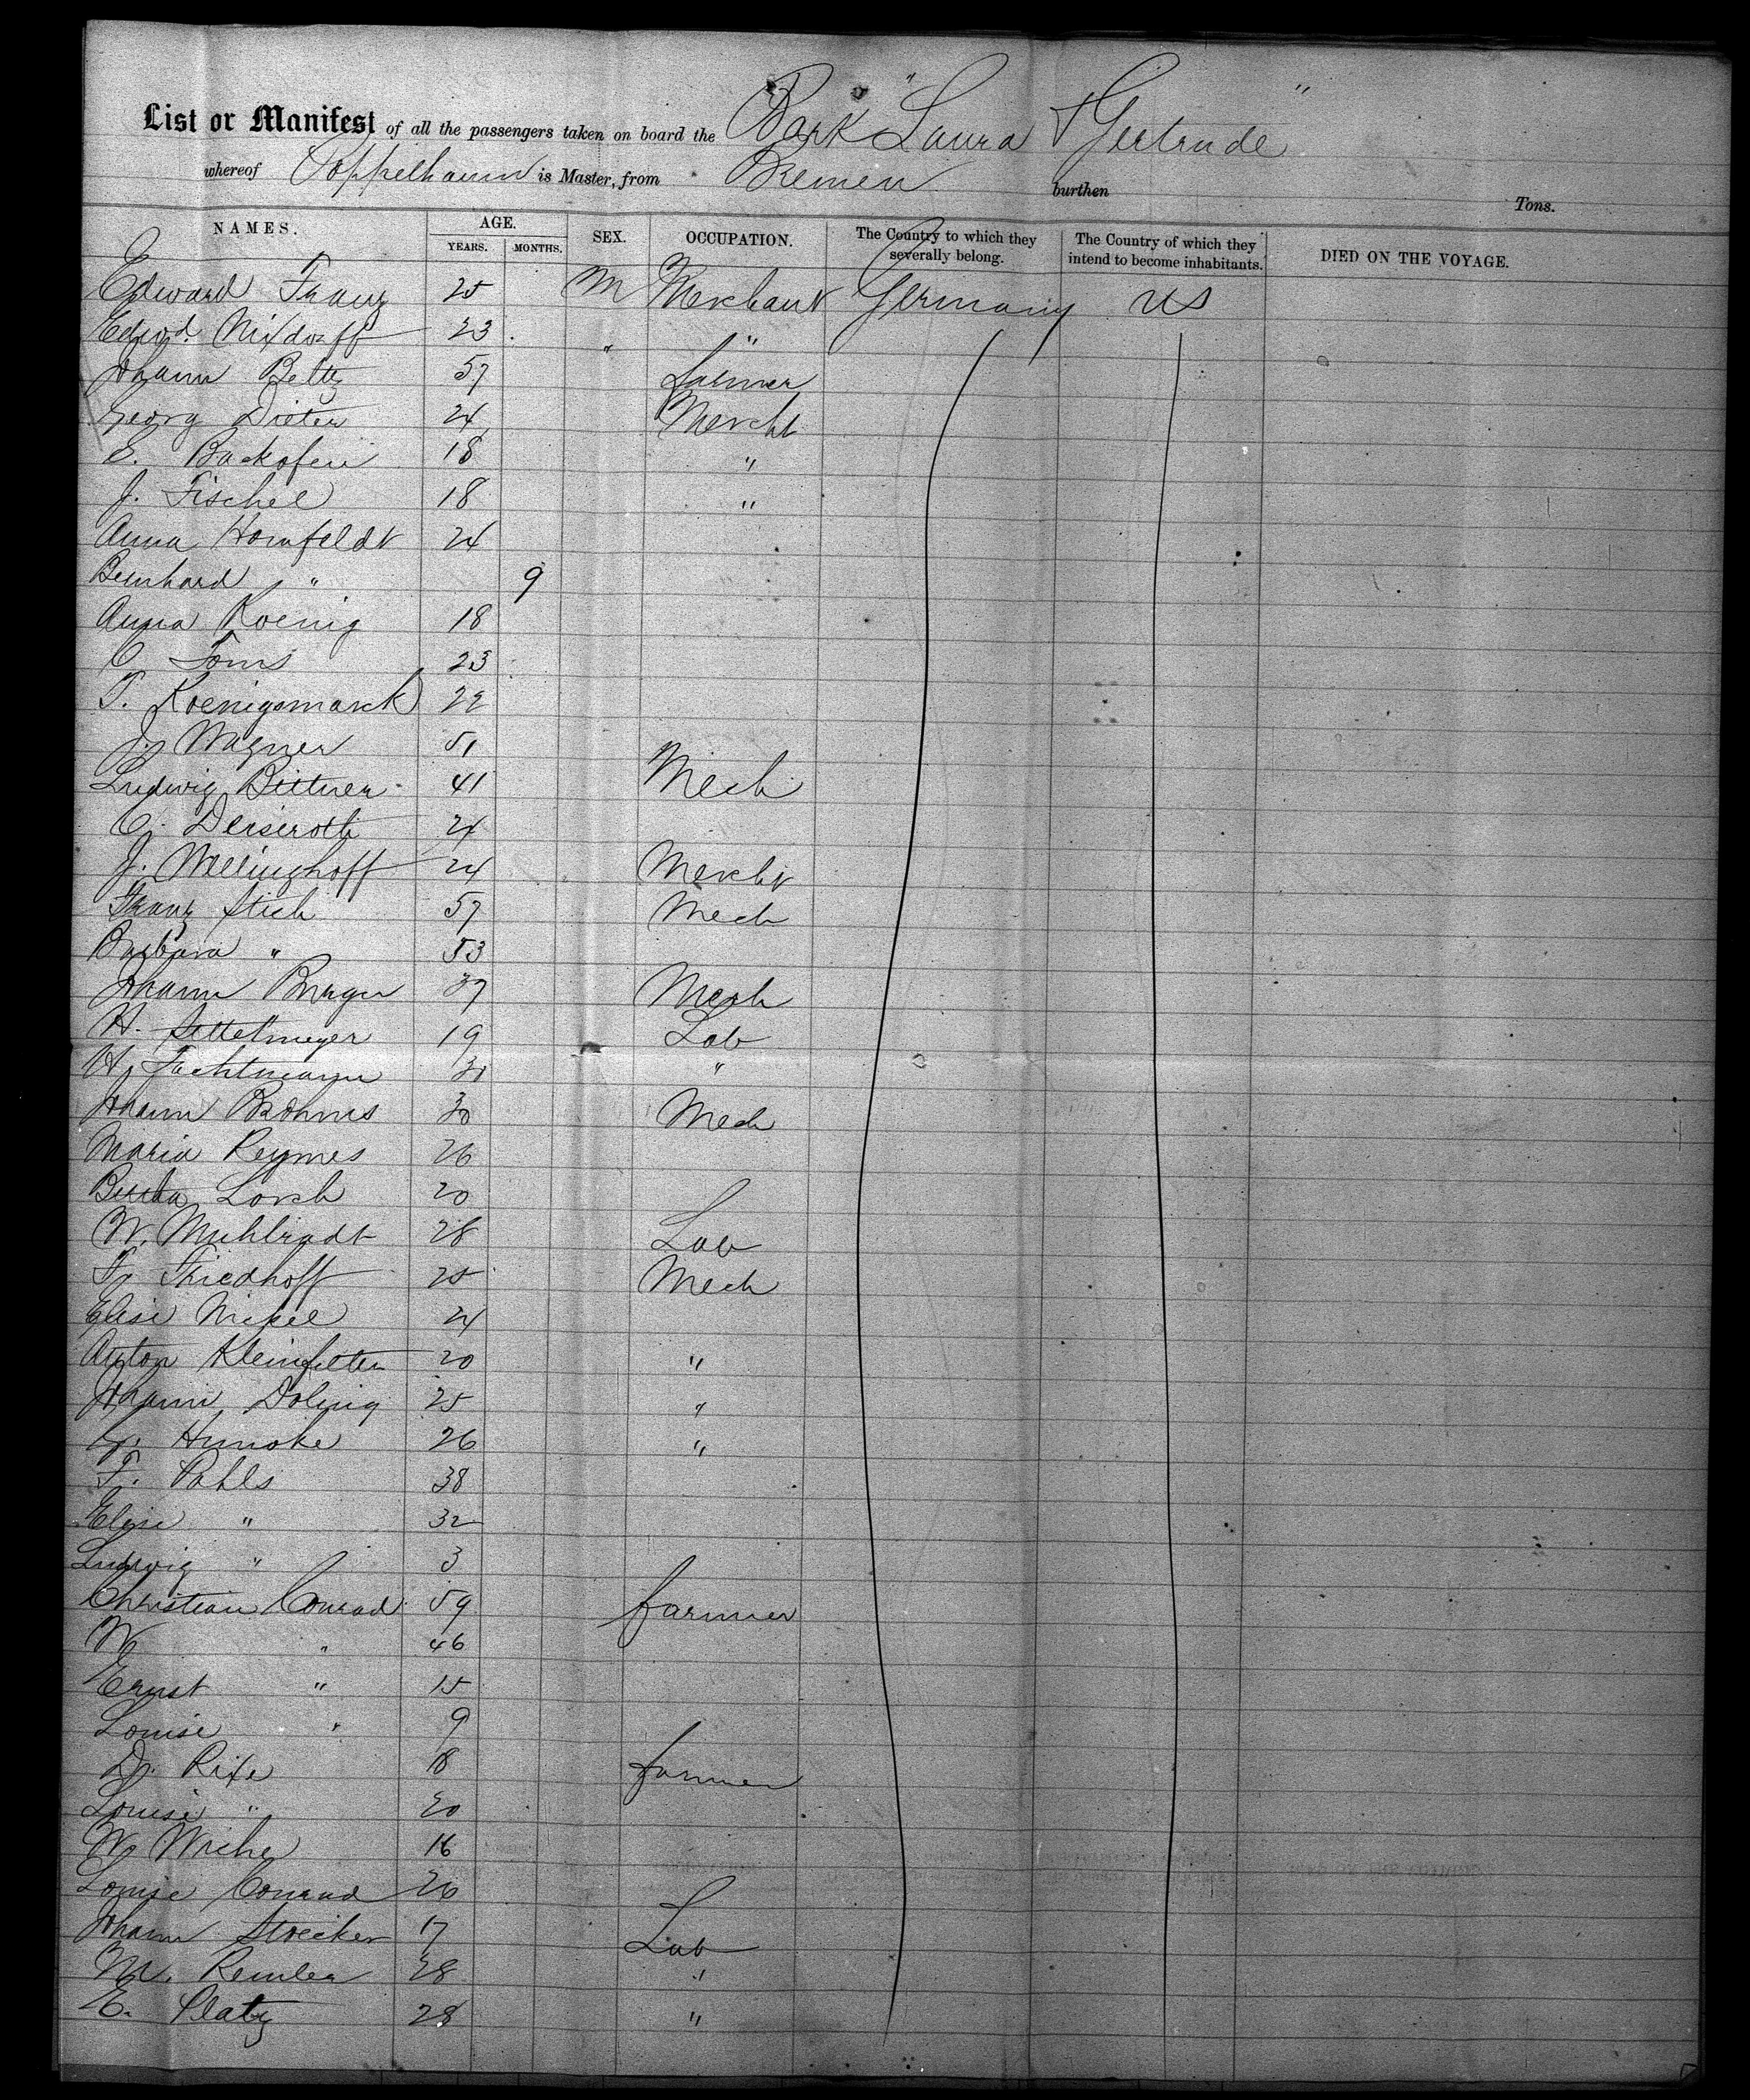 List or Manifest of all the passengers taken on board the Bark "Laura & Gertrude"
whereof Poppelhaum is Master, from Bremen burthen Tons.
NAMES. AGE. YEARS. MONTHS. SEX. OCCUPATION. The Country to which they severally belong. The Country of which they intend to become inhabitants. DIED ON THE VOYAGE.
Edward Franz 25 M Merchant Germany US
Edwd. Nixdorff 23 " "
Johann Beltz 57 farmer
Georg Dieter 24 Mercht
E. Backofen 18 "
J. Fischel 18 "
Anna Homfeldt 24
Bernhard " 9
Anna Koenig 18
C. Toms 23
T. Koenigsmarck 22
J. Wagner 51
Ludwig Bittner 41 Mech
C. Deiseroth 24
J. Wellinghoff 24 Mercht
Franz Stich 57 Mech
Barbara " 53
Johann Burger 37 Mech
H. Settelmeyer 19 Lab
H. "
Johann Brahms 30 Mech
Maria Reymes 26
Bertha Lorch 20
W. Muhlradt 28 Lab
F. Friedhoff 25 Mech
Elise Nickel 24
Anton Kleinfelter 20 "
Johann Doling 25 "
G. Humoke 26 "
F. Pahls 38
Elise " 32
Ludwig " 3
Christian Conrad 59 farmer
W " 46
Ernst " 15
Louise " 9
D. Rixe 18 farmer
Louise " 20
W. 16
Louise Conrad 26
Johann Stoecker 17 Lab
M. Remler 28 "
E. Platz 28 "